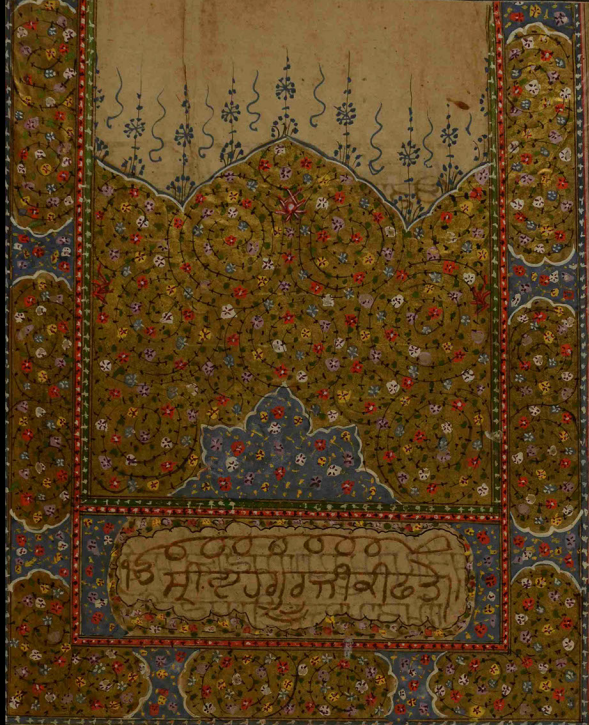 ੴ ਸ੍ਰੀ ਵਾਹਗੁਰੂ ਜੀ ਕੀ ਫਤੇ